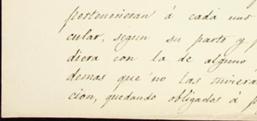 pertenecieran á cada uno
cular, segun su parto y p
diera con la de alguno
demas que no las tuviera
cion, quedando obligados á p